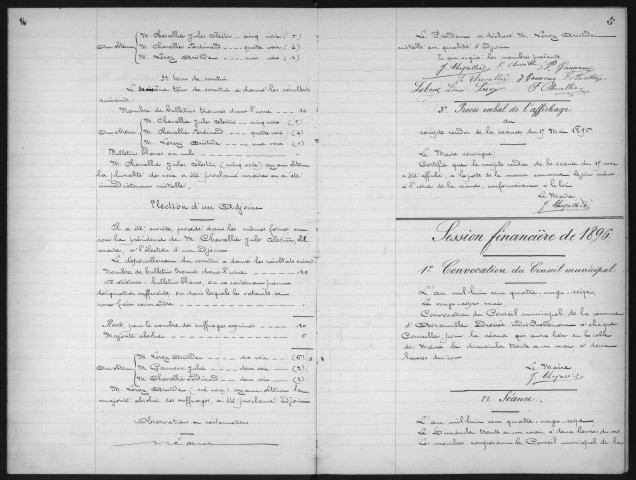 M. Chevallier Jules Célestin — cinq voix (5)
Ont obtenu M. Chevallier Ferdinand — quatre voix (4)
M. Leroy Aristide — une voix (1)
3e tour de scrutin
Le troisième tour de scrutin a donné les résultats
suivants
Nombre de bulletins trouvés dans l'urne — 10
M. Chevallier Jules Célestin — cinq voix (5)
Ont obtenu M. Chevallier Ferdinand — quatre voix (4)
M. Leroy Aristide — une voix (1)
Bulletin blanc ou nul
M. Chevallier Jules Célestin (cinq voix) ayant obtenu
la pluralité de voix a été proclamé maire et a été
immédiatement installé.
Élection d'un Adjoint
Il a été ensuite procédé dans les mêmes formes et
sous la présidence de M. Chevallier Jules Célestin, élu
maire, à l'élection d'un Adjoint
Le dépouillement du scrutin a donné les résultats suivants
Nombre de bulletins trouvés dans l'urne — 10
A déduire : bulletins blancs, ou ne contenant pas une
désignation suffisante, ou dans lesquels les votants se
sont fait connaître
Reste pour le nombre des suffrages exprimés — 10
Majorité absolue — 6
M. Leroy Aristide — six voix — (6)
Ont obtenu M. Jules — deux voix — (2)
M. Chevallier Ferdinand — deux voix — (2)
M. Leroy Aristide (six voix) ayant obtenu la
majorité absolue des suffrages, a été proclamé Adjoint
Observations et réclamations
néant
5
Le Président a déclaré M. Leroy Aristide
installé en qualité d'Adjoint
Et ont signé les membres présents
Leroy F. Chevallier
3° Procès verbal de l'affichage
du
compte rendu de la séance du 17 Mai 1896
Le Maire soussigné
Certifie que le compte rendu de la séance du 17 mai
a été affiché à la porte de la maison commune
de la séance, conformément à la loi
Le Maire
Session financière de 1896.
1° Convocation du Conseil municipal
L'an mil huit cent quatre-vingt-seize
Le vingt-sept mai
Convocation du Conseil municipal de la commune
d' individuellement à chaque
Conseiller pour la séance qui aura lieu à la salle
de Mairie le dimanche trente et un mai, à deux
heures du soir
Le Maire
2° Séance.
L'an mil huit cent quatre-vingt-seize
Le Dimanche trente et un mai, à deux heures du soir
Les membres composant le Conseil municipal de la